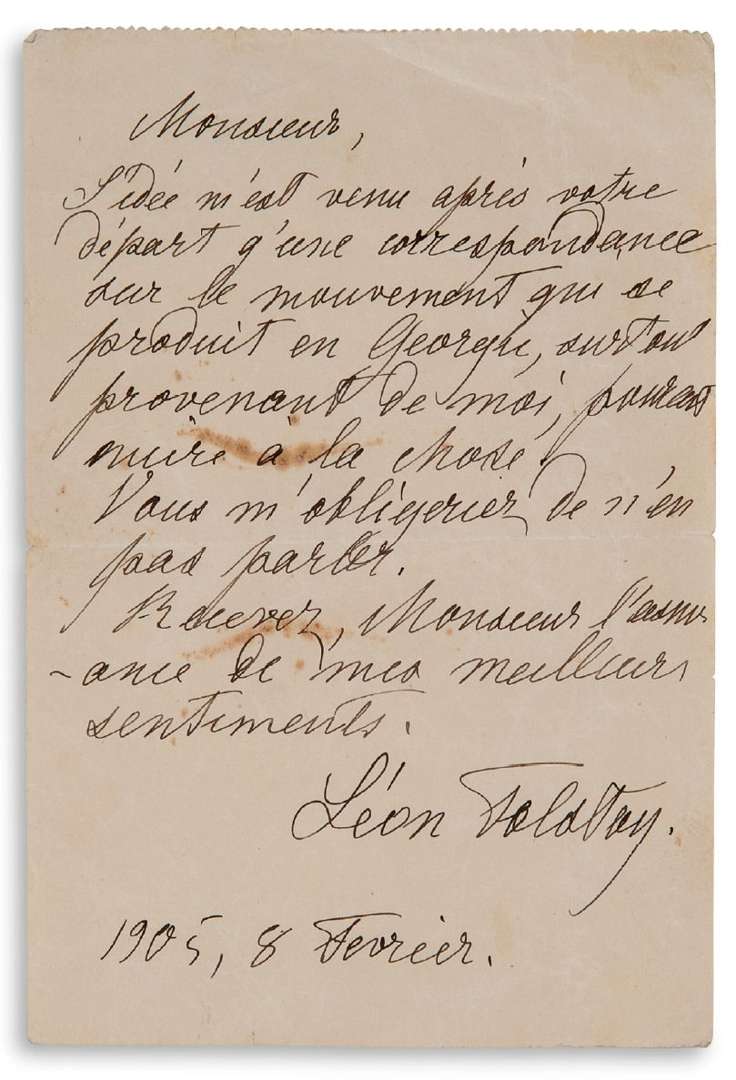 Monsieur,
L'idée m'est venu après votre
départ q'une correspondance
sur le mouvement qui se
produit en Georgie, surtout
provenant de moi, pourait
nuire à la chose.
Vous m'obligeriez de n'en
pas parler.
Recevez, Monsieur l'assur
-ance de mes meilleurs
sentiments.
Léon Tolstoy.
1905, 8 Fevrier.